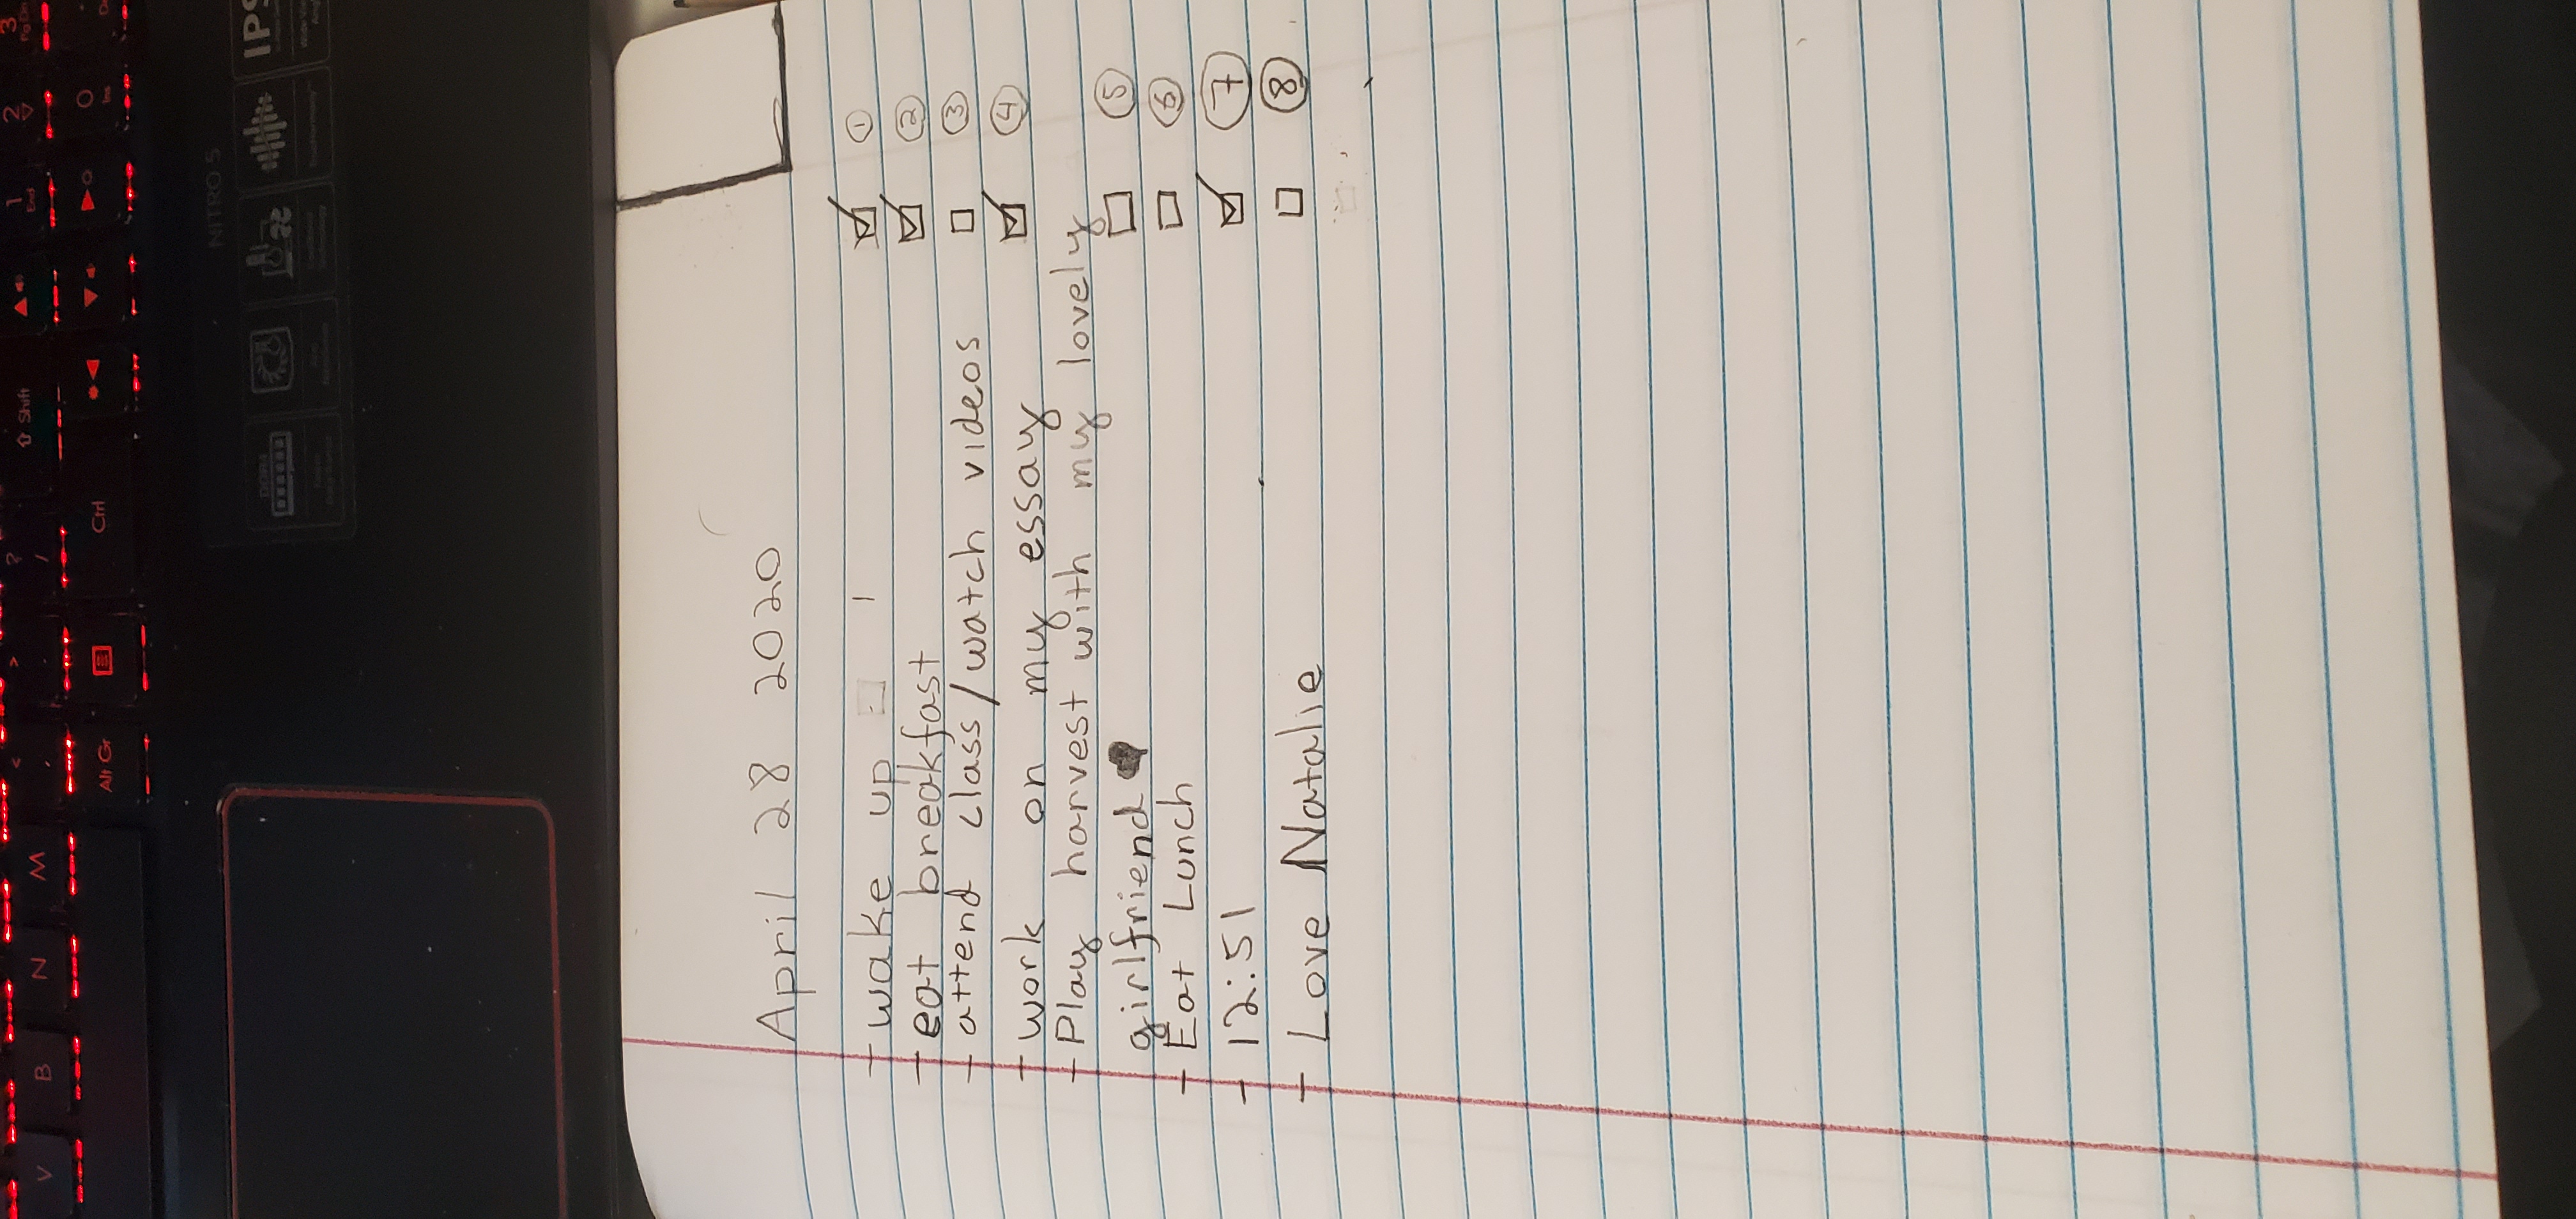 April 28 2020
- wake up ☑ ①
- eat breakfast ☑ ②
- attend class/watch videos ☐ ③
- work on my essay ☑ ④
- Play harvest with my lovely
girlfriend ♥ ☐ ⑤
- Eat Lunch ☐ ⑥
- 12:51 ☑ ⑦
- Love Natalie ☐ ⑧
NITRO 5
IPS
Shift
Ctrl
Alt Gr
V B N M
1 End
2
3 Pg Dn
0 Ins